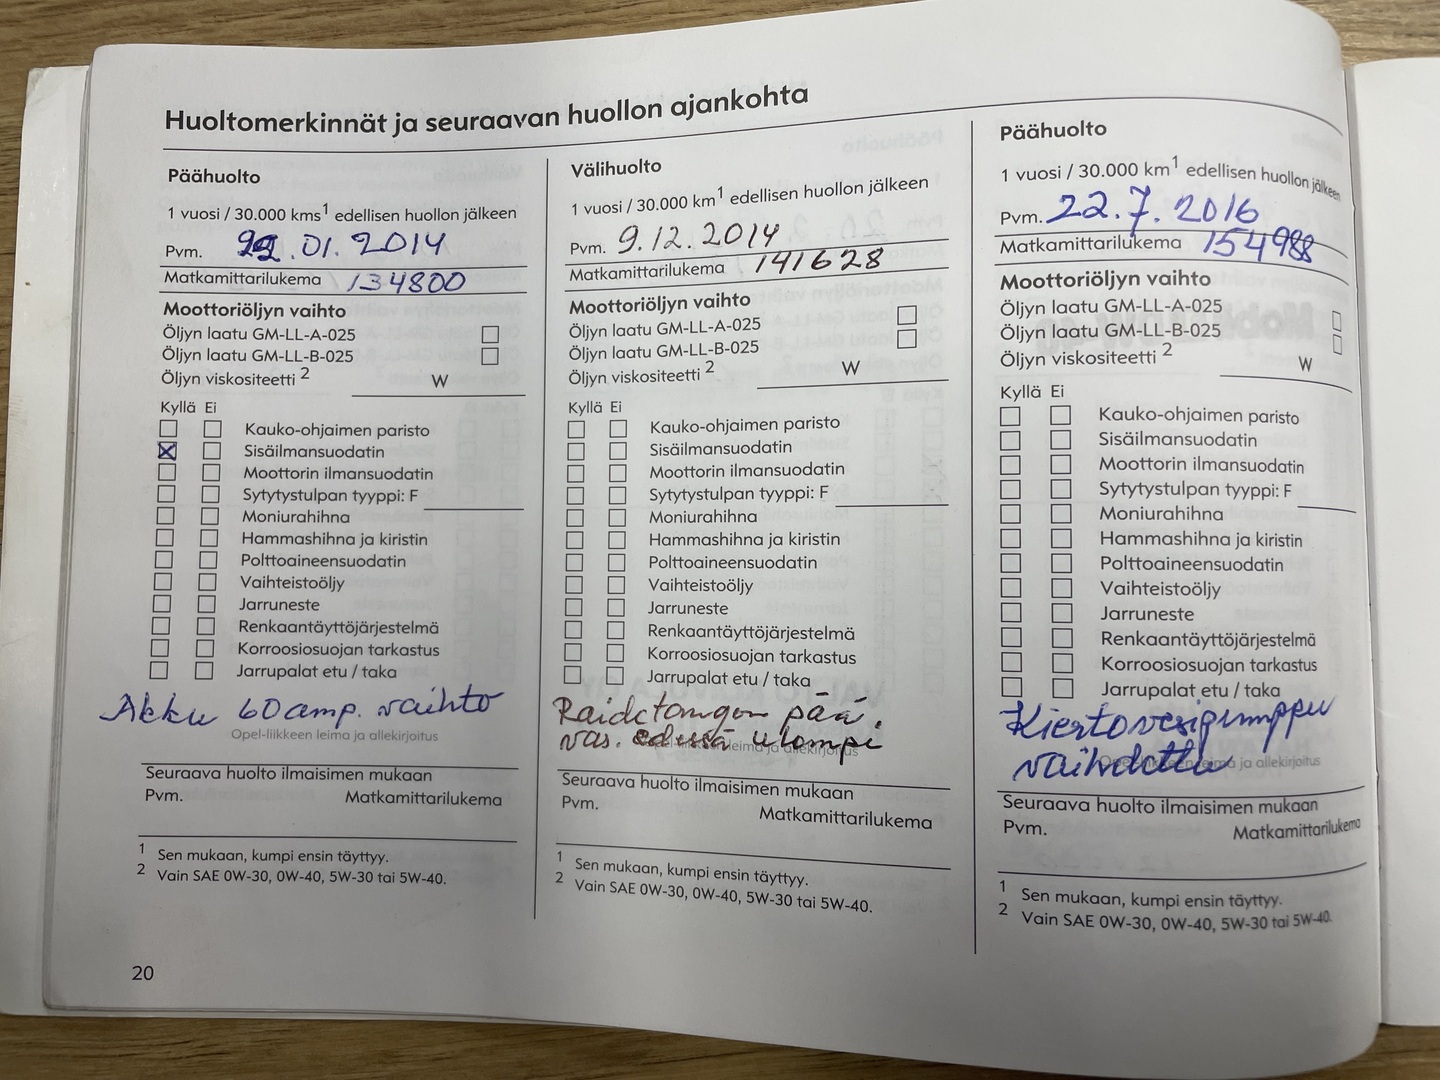 Huoltomerkinnät ja seuraavan huollon ajankohta
Päähuolto
1 vuosi / 30.000 kms1 edellisen huollon jälkeen
Pvm. 22.01.2014
Matkamittarilukema 134800
Moottoriöljyn vaihto
Öljyn laatu GM-LL-A-025
Öljyn laatu GM-LL-B-025
Öljyn viskositeetti 2 W
Kyllä Ei
Kauko-ohjaimen paristo
Sisäilmansuodatin
Moottorin ilmansuodatin
Sytytystulpan tyyppi: F
Moniurahihna
Hammashihna ja kiristin
Polttoaineensuodatin
Vaihteistoöljy
Jarruneste
Renkaantäyttöjärjestelmä
Korroosiosuojan tarkastus
Jarrupalat etu / taka
Akku 60amp. vaihto
Opel-liikkeen leima ja allekirjoitus
Seuraava huolto ilmaisimen mukaan
Pvm. Matkamittarilukema
1 Sen mukaan, kumpi ensin täyttyy.
2 Vain SAE 0W-30, 0W-40, 5W-30 tai 5W-40.
20
Välihuolto
1 vuosi / 30.000 km1 edellisen huollon jälkeen
Pvm. 9.12.2014
Matkamittarilukema 141628
Moottoriöljyn vaihto
Öljyn laatu GM-LL-A-025
Öljyn laatu GM-LL-B-025
Öljyn viskositeetti 2 W
Kyllä Ei
Kauko-ohjaimen paristo
Sisäilmansuodatin
Moottorin ilmansuodatin
Sytytystulpan tyyppi: F
Moniurahihna
Hammashihna ja kiristin
Polttoaineensuodatin
Vaihteistoöljy
Jarruneste
Renkaantäyttöjärjestelmä
Korroosiosuojan tarkastus
Jarrupalat etu / taka
Raidetangon pää.
vas. edessä ulompi
Opel-liikkeen leima ja allekirjoitus
Seuraava huolto ilmaisimen mukaan
Pvm. Matkamittarilukema
1 Sen mukaan, kumpi ensin täyttyy.
2 Vain SAE 0W-30, 0W-40, 5W-30 tai 5W-40.
Päähuolto
1 vuosi / 30.000 km1 edellisen huollon jälkeen
Pvm. 22.7.2016
Matkamittarilukema 154988
Moottoriöljyn vaihto
Öljyn laatu GM-LL-A-025
Öljyn laatu GM-LL-B-025
Öljyn viskositeetti 2 W
Kyllä Ei
Kauko-ohjaimen paristo
Sisäilmansuodatin
Moottorin ilmansuodatin
Sytytystulpan tyyppi: F
Moniurahihna
Hammashihna ja kiristin
Polttoaineensuodatin
Vaihteistoöljy
Jarruneste
Renkaantäyttöjärjestelmä
Korroosiosuojan tarkastus
Jarrupalat etu / taka
Kiertovesipumppu
vaihdettu
Opel-liikkeen leima ja allekirjoitus
Seuraava huolto ilmaisimen mukaan
Pvm. Matkamittarilukema
1 Sen mukaan, kumpi ensin täyttyy.
2 Vain SAE 0W-30, 0W-40, 5W-30 tai 5W-40.